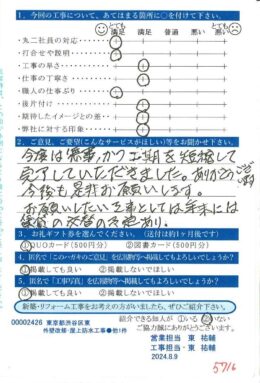 1. 今回の工事について、あてはまる箇所に○を付けて下さい。
とても満足 満足 普通 悪い とても悪い
・丸二社員の対応
・打合せや説明
・工事の早さ
・仕事の丁寧さ
・職人の仕事ぶり
・後片付け
・期待したイメージとの差
・弊社に対する印象
2. ご意見、ご要望(こんなサービスがほしい)等をお聞かせ下さい。
今度は 工期を短縮して
完了していただきました。ありがとうございます
今後も是非お願いします。
お願いしたい としては年末には
3. お礼ギフト券を選んでください。(送付は約1ヶ月後です)
①QUOカード(500円分) ②図書カード(500円分)
4. 匿名で「このハガキのご意見」を広報物等へ掲載してもよろしいでしょうか?
①掲載しても良い ②掲載しないでほしい
5. 匿名で「工事写真」を広報物等へ掲載してもよろしいでしょうか?
①掲載しても良い ②掲載しないでほしい
新築・リフォーム工事をお考えの方がいましたら、ぜひご紹介下さい。
00002426 東京都渋谷区東
外壁改修・屋上防水工事●他1件
紹介できる知人が ①いる ②いない
ご協力誠にありがとうございます。
営業担当 東 祐輔
工事担当 東 祐輔
2024.8.9
5716